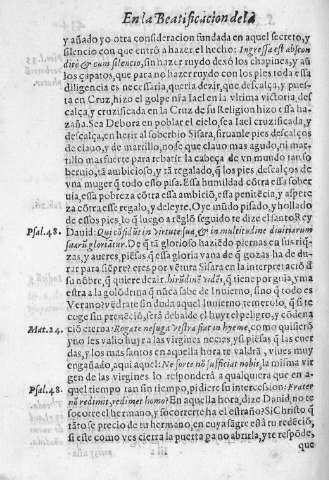 En la Beatificacion del B.
y añado yo otra consideracion fundada en aquel secreto, y
silencio con que entrô a hazer el hecho: Ingressa est abscon
ditè & cum silencio, sin hazer ruydo dexò los chapines, y aũ
los çapatos, que para no hazer ruydo con los pies toda essa
diligencia es necessaria, queria dezir, que descalça, y pues-
ta en Cruz, hizo el golpe nr̃a Iael en la vltima victoria, des
calça, y crucificada en la Cruz de su Religion hizo essa ha-
zaña. Sea Debora en poblar el cielo, sea Iael crucificada, y
descalça, en herir al soberbio Sisara, siruanle pies descalços
de clauo, y de martillo, no se que clauo mas agudo, ni mar-
tillo mas fuerte para rebatir la cabeça de vn mundo tan so-
beruio, tã ambicioso, y tã regalado, q̃ los pies descalços de
vna muger q̃ todo esso pisa. Essa humildad cõtra essa sober
uia, essa pobreza cõtra essa ambiciõ, essa penitẽcia, y aspere
za cõtra esse regalo, y deleyte, Oye mũdo pisado, y hollado
de essos pies, lo q̃ luego a rẽglõ seguido te dize el santo Rey
Psal. 48. Dauid: Qui cõfidũt in virtute sua, & in multitudine diuitiarum
suarũ gloriãtur. De q̃ tã glorioso haziẽdo piernas en tus riq̃-
zas, y aueres, piẽsas q̃ essa gloria vana de q̃ gozas ha de du-
rar para siẽpre? eres por vẽtura Sisara en la interpretaciõ d̃
su nõbre, q̃ quiere dezir. hirũdinẽ vidẽs, q̃ tiene por guia, y ma
estra a la golõdrina q̃ nũca sabe de Inuierno, sino q̃ todo es
Verano? vẽdrate sin duda aquel Inuierno temeroso, q̃ si te
coge sin preuẽciõ, serà debalde el huyr el peligro, y cõdena
Mat. 24. ciõ eterna: Rogate ne fuga vestra fiat in hyeme, como quisierõ
y no les valio huyr a las virgines necias, y si piẽsas q̃ las cue
das, y los mas santos en aquella hora te valdrã, viues muy
engañado, aqui aquel: Ne forte nõ sufficiat nobis, la misma vir
gen de las virgines lo responderà a qualquiera que en a-
Psal. 48. quel tiempo tan sin tiempo, pidiere su intercession: Frater
nõ redimit, redimet homo? En aquella hora dize Dauid, no te
socorre el hermano, y socorrerte ha el estraño? Si Christo q̃
tãto se precio de su hermano, en cuya sãgre està tu redẽciõ,
si este como ves cierra la puerta pa no abrirla, y te respõde,
que